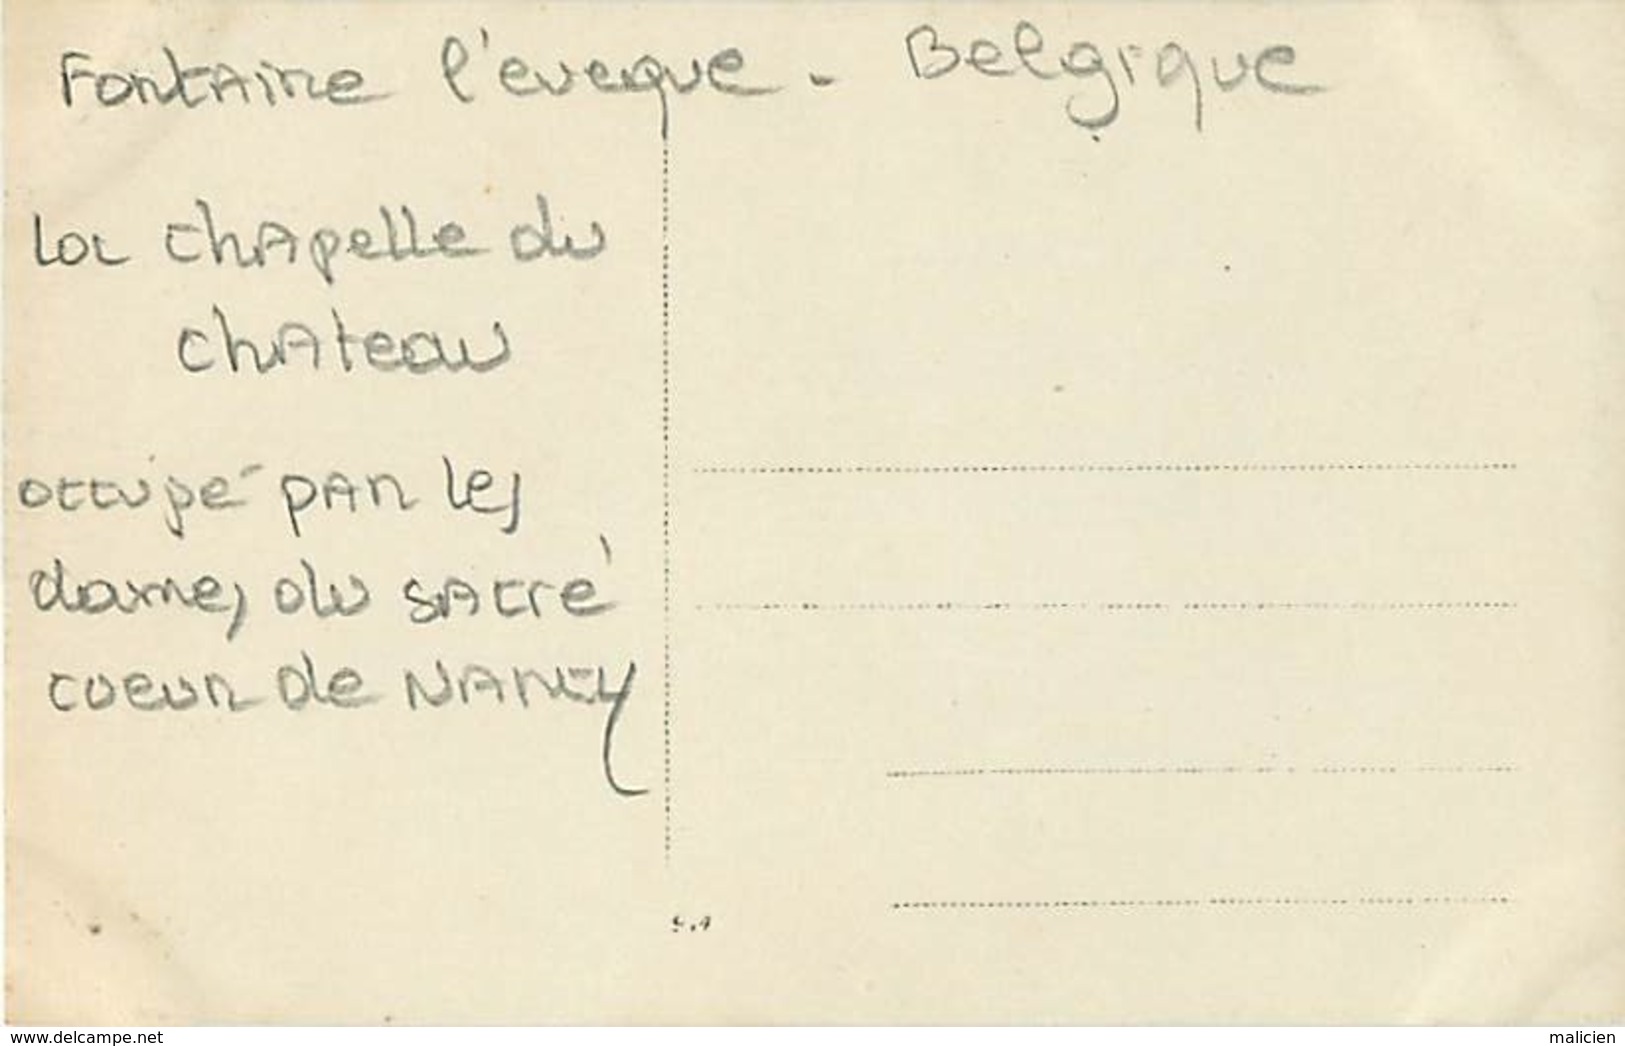 Fontaine l'eveque - Belgique
la chapelle du
chateau
occupé par les
dames du sacré
coeur de NANCY
www.delcampe.net
malicien